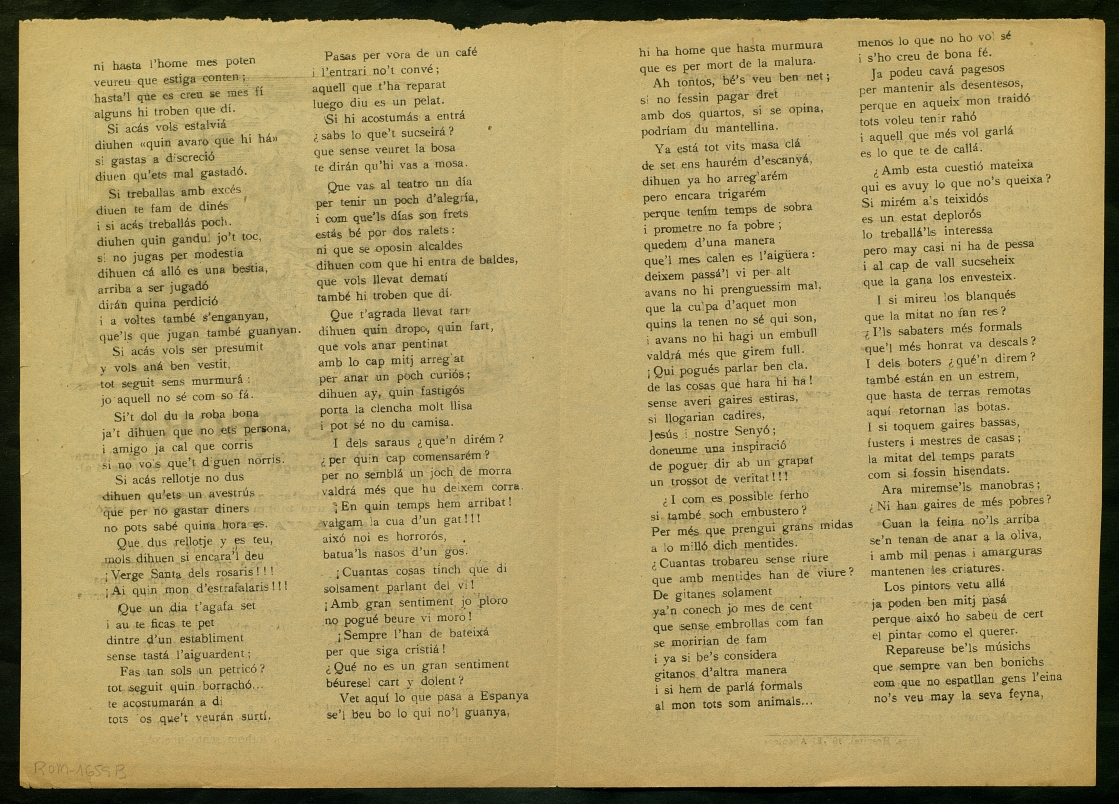 ni hasta l'home mes poten
veureu que estiga conten;
hasta'l que es creu se mes fí
alguns hi troben que dí.
Si acás vols estalviá
diuhen «quin avaro que hi há»
si gastas a discreció
diuen qu'ets mal gastadó.
Si treballas amb excés
diuen te fam de dinés
i si acás treballás poch.
diuhen quin gandul jo't toc,
si no jugas per modestia
dihuen cá alló es una bestia,
arriba a ser jugadó
dirán quina perdició
i a voltes també s'enganyan,
que'ls que jugan també guanyan.
Si acás vols ser presumit
y vols aná ben vestit,
tot seguit sens murmurá:
jo aquell no sé com so fá.
Si't dol du la roba bona
ja't dihuen que no ets persona,
i amigo ja cal que corris
si no vols que't diguen nòrris.
Si acás rellotje no dus
dihuen qu'ets un avestrús
que per no gastar diners
no pots sabé quina hora es.
Que dus rellotje y es teu,
mols dihuen si encara'l deu
¡Verge Santa dels rosaris!!!
¡Ai quin mon d'estrafalaris!!!
Que un dia t'agafa set
i au te ficas te pet
dintre d'un establiment
sense tastá l'aiguardent;
Fas tan sols un petricó?
tot seguit quin borrachó...
te acostumarán a di
tots os que't veurán surtí.
Pasas per vora de un café
i l'entrari no't convé;
aquell que t'ha reparat
luego diu es un pelat.
Si hi acostumás a entrá
¿sabs lo que't sucseirá?
que sense veuret la bosa
te dirán qu'hi vas a mosa.
Que vas al teatro un día
per tenir un poch d'alegría,
i com que'ls días son frets
estás bé por dos ralets:
ni que se oposin alcaldes
dihuen com que hi entra de baldes,
que vols llevat demati
també hi troben que dí.
Que t'agrada llevat tart
dihuen quin dropo, quin fart,
que vols anar pentinat
amb lo cap mitj arreg'at
per anar un poch curiós;
dihuen ay, quin fastigós
porta la clencha molt llisa
i pot sé no du camisa.
I dels saraus ¿que'n dirém?
¿per quin cap comensarém?
per no semblá un joch de morra
valdrá més que hu deixem corra.
¡En quin temps hem arribat!
valgam la cua d'un gat!!!
aixó noi es horrorós,
batua'ls nasos d'un gos.
¡Cuantas cosas tinch que di
solsament parlant del vi!
¡Amb gran sentiment jo ploro
no pogué beure vi moro!
¡Sempre l'han de bateixá
per que siga cristiá!
¿Qué no es un gran sentiment
béuresel cart y dolent?
Vet aquí lo que pasa a Espanya
se'l beu bo lo qui no'l guanya,
hi ha home que hasta murmura
que es per mort de la malura.
Ah tontos, bé's veu ben net;
si no fessin pagar dret
amb dos quartos, si se opina,
podríam du mantellina.
Ya está tot vits masa clá
de set ens haurém d'escanyá,
dihuen ya ho arreg'arém
pero encara trigarém
perque tením temps de sobra
i prometre no fa pobre;
quedem d'una manera
que'l mes calen es l'aigüera:
deixem passá'l vi per alt
avans no hi prenguessim mal,
que la culpa d'aquet mon
quins la tenen no sé qui son,
i avans no hi hagi un embull
valdrá més que girem full.
¡Qui pogués parlar ben cla,
de las cosas que hara hi ha!
sense averi gaires estiras,
si llogarian cadires,
Jesús i nostre Senyó;
doneume una inspiració
de poguer dir ab un grapat
un trossot de veritat!!!
¿I com es possible ferho
si també soch embustero?
Per més que prengui grans midas
a lo milló dich mentides.
¿Cuantas trobareu sense riure
que amb mentides han de viure?
De gitanes solament
ya'n conech jo mes de cent
que sense embrollas com fan
se moririan de fam
i ya si be's considera
gitanos d'altra manera
i si hem de parlá formals
al mon tots som animals...
menos lo que no ho vol sé
i s'ho creu de bona fé.
Ja podeu cavá pagesos
per mantenir als desentesos,
perque en aqueix mon traidó
tots voleu tenir rahó
i aquell que més vol garlá
es lo que te de callá.
¿Amb esta cuestió mateixa
qui es avuy lo que no's queixa?
Si mirém a's teixidós
es un estat deplorós
lo treballá'ls interessa
pero may casi ni ha de pessa
i al cap de vall sucseheix
que la gana los envesteix.
I si mireu los blanqués
que la mitat no fan res?
¿I'ls sabaters més formals
que'l més honrat va descals?
I dels boters ¿qué'n direm?
també están en un estrem,
que hasta de terras remotas
aquí retornan las botas.
I si toquem gaires bassas,
fusters i mestres de casas;
la mitat del temps parats
com si fossin hisendats.
Ara miremse'ls manobras;
¿Ni han gaires de més pobres?
Cuan la feina no'ls arriba
se'n tenan de anar a la oliva,
i amb mil penas i amarguras
mantenen les criatures.
Los pintors vetu allá
ja poden ben mitj pasá
perque aixó ho sabeu de cert
el pintar como el querer.
Repareuse be'ls músichs
que sempre van ben bonichs
com que no espatllan gens l'eina
no's veu may la seva feyna,
ROM-1659B